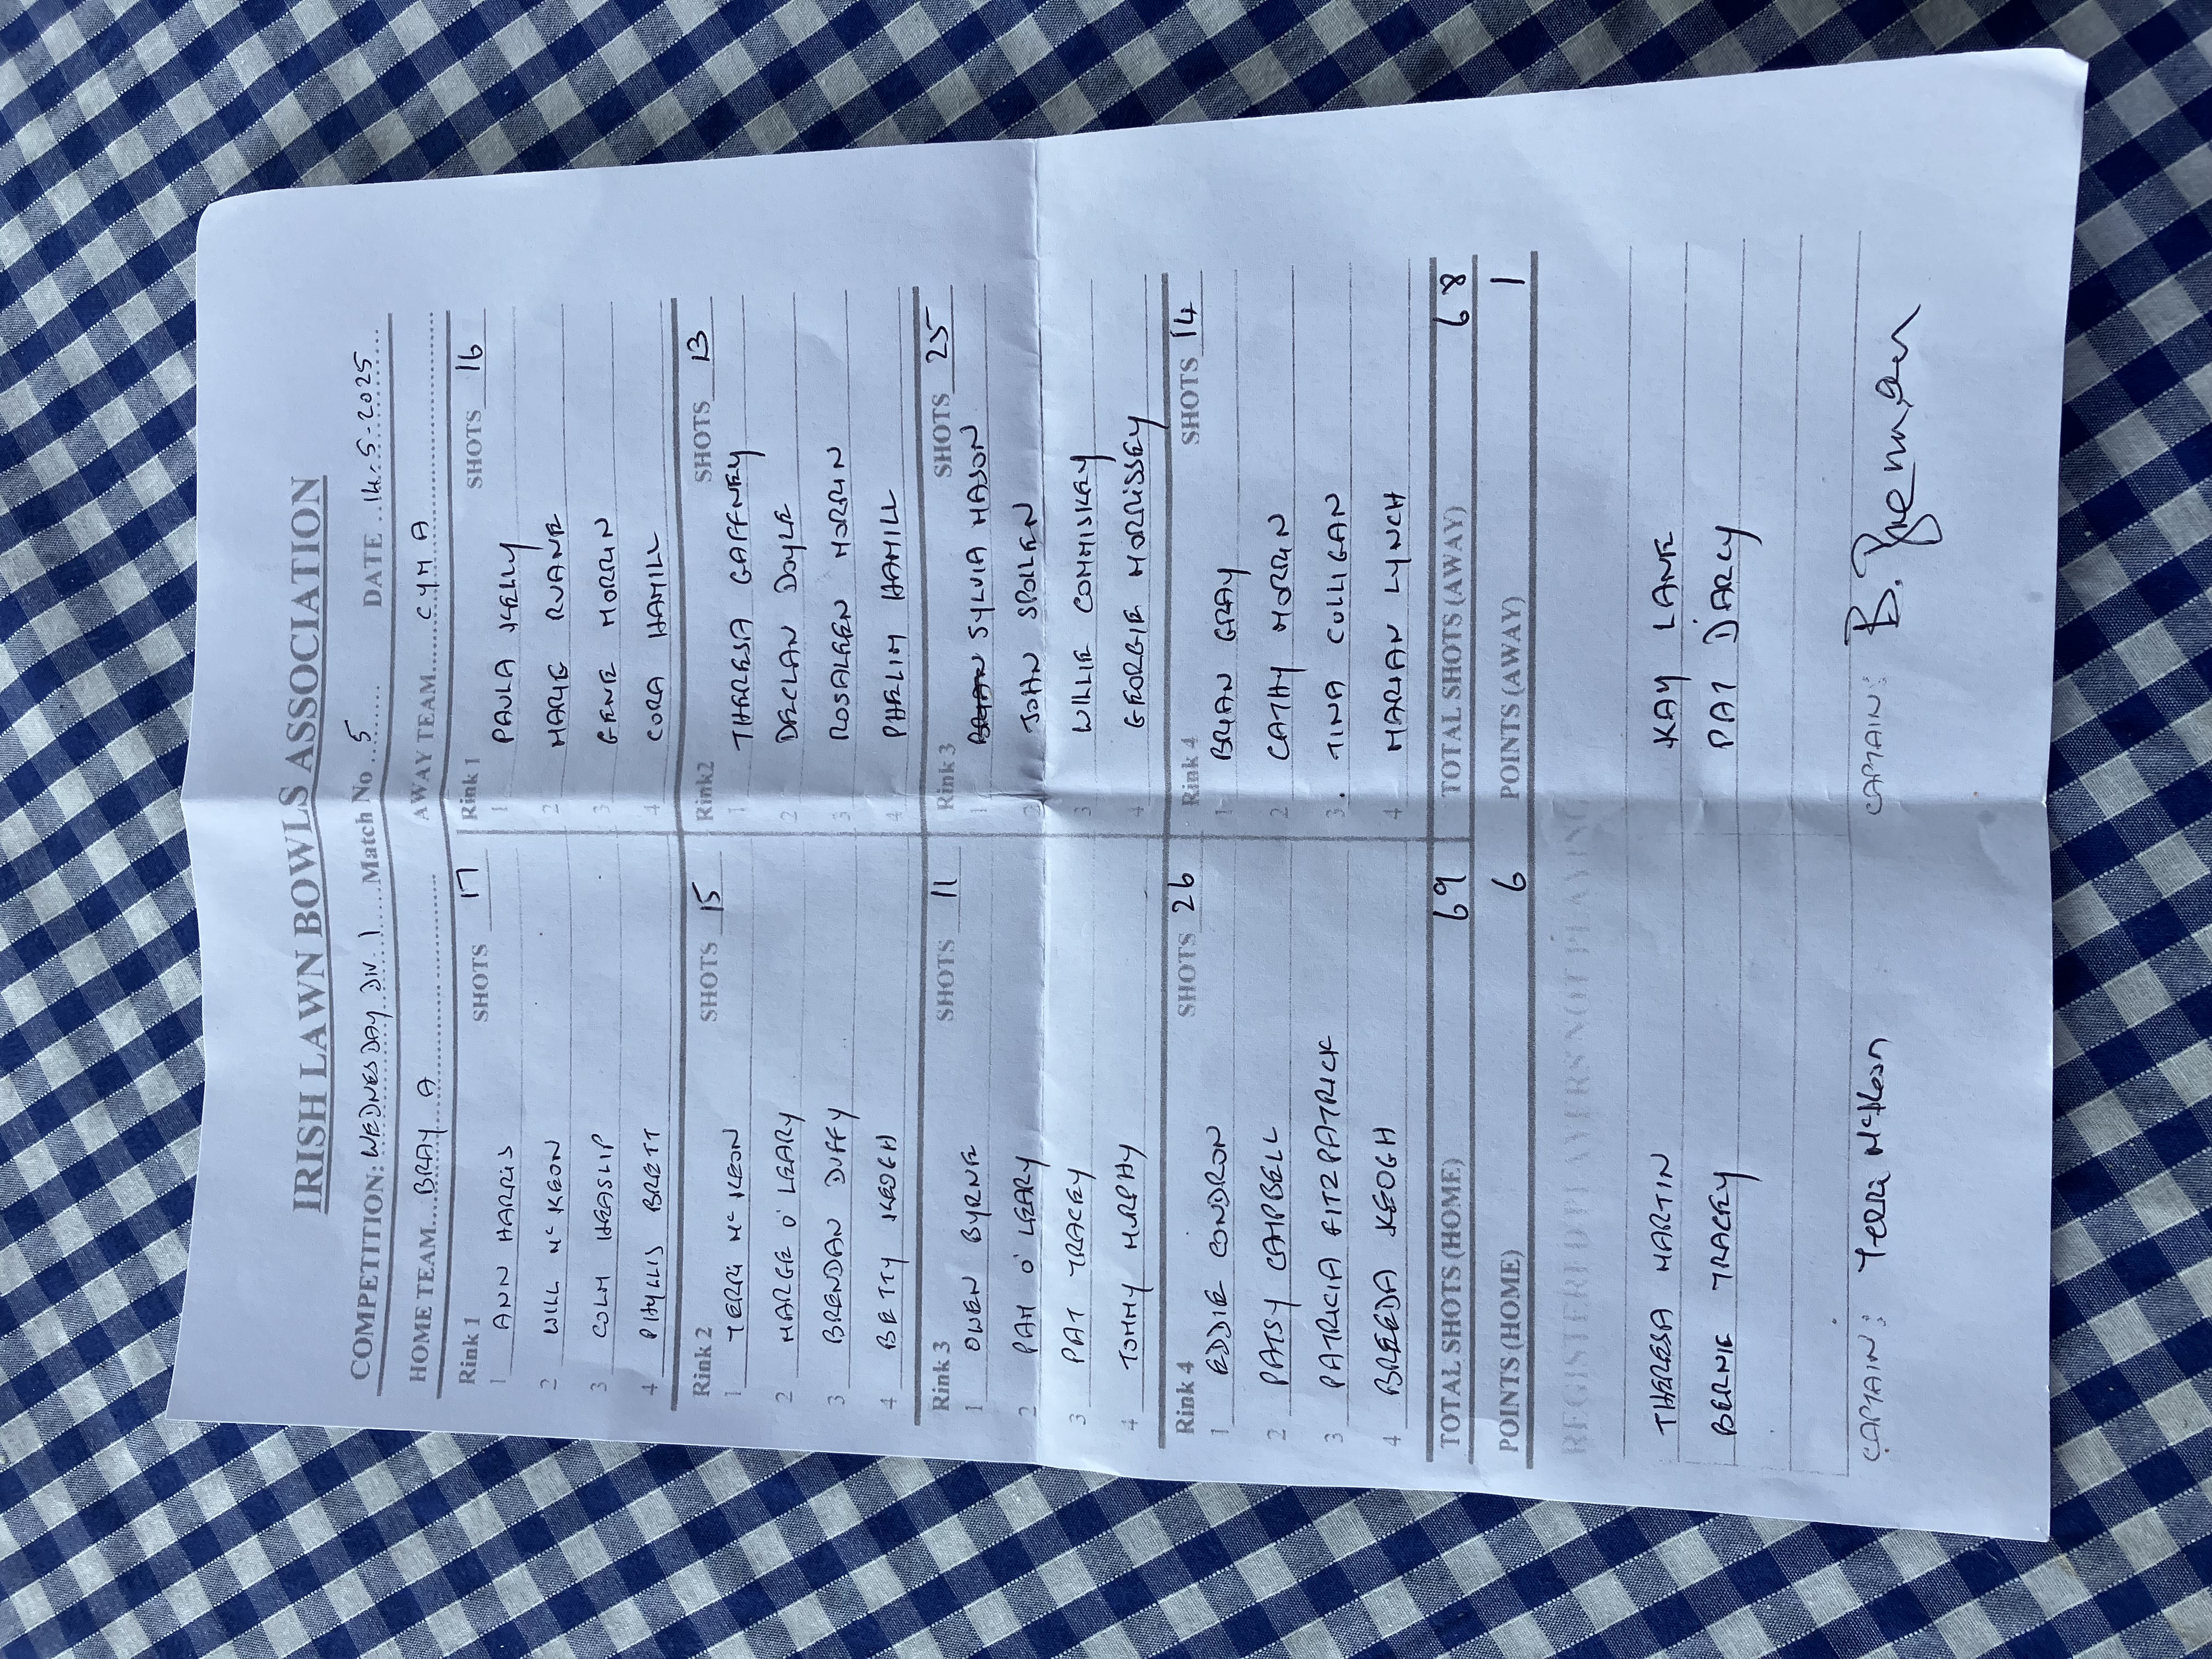 IRISH LAWN BOWLS ASSOCIATION
COMPETITION: WEDNESDAY DIV. 1 Match No 5 DATE 14-5-2025
HOME TEAM BRAY A AWAY TEAM CYM A
Rink 1 SHOTS 17 Rink 1 SHOTS 16
1 ANN HARRIS 1 PAULA KELLY
2 WILL Mc KEON 2 MARIE RUANE
3 COLM HEASLIP 3 GENE MORRIN
4 PHYLLIS BRETT 4 CORA HAMILL
Rink 2 SHOTS 15 Rink2 SHOTS 13
1 TERRI Mc KEON 1 THERESA GAFFNEY
2 MARGIE O' LEARY 2 DECLAN DOYLE
3 BRENDAN DUFFY 3 ROSALEEN MORRIN
4 BETTY KEOGH 4 PHELIM HAMILL
Rink 3 SHOTS 11 Rink 3 SHOTS 25
1 OWEN BYRNE 1 SYLVIA MASON
2 PAM O' LEARY 2 JOHN SPOLLEN
3 PAT TRACEY 3 WILLIE COMMISKEY
4 TOMMY MURPHY 4 GEORGIE MORRISSEY
Rink 4 SHOTS 26 Rink 4 SHOTS 14
1 EDDIE CONDRON 1 BRYAN GRAY
2 PATSY CAMPBELL 2 CATHY MORRIN
3 PATRICIA FITZPATRICK 3 TINA CULLIGAN
4 BREEDA KEOGH 4 MARIAN LYNCH
TOTAL SHOTS (HOME) 69 TOTAL SHOTS (AWAY) 68
POINTS (HOME) 6 POINTS (AWAY) 1
REGISTERED PLAYERS NOT PLAYING
THERESA MARTIN KAY LANE
BERNIE TRACEY PAT D'ARCY
CAPTAIN: Terri McKeon CAPTAIN: B.